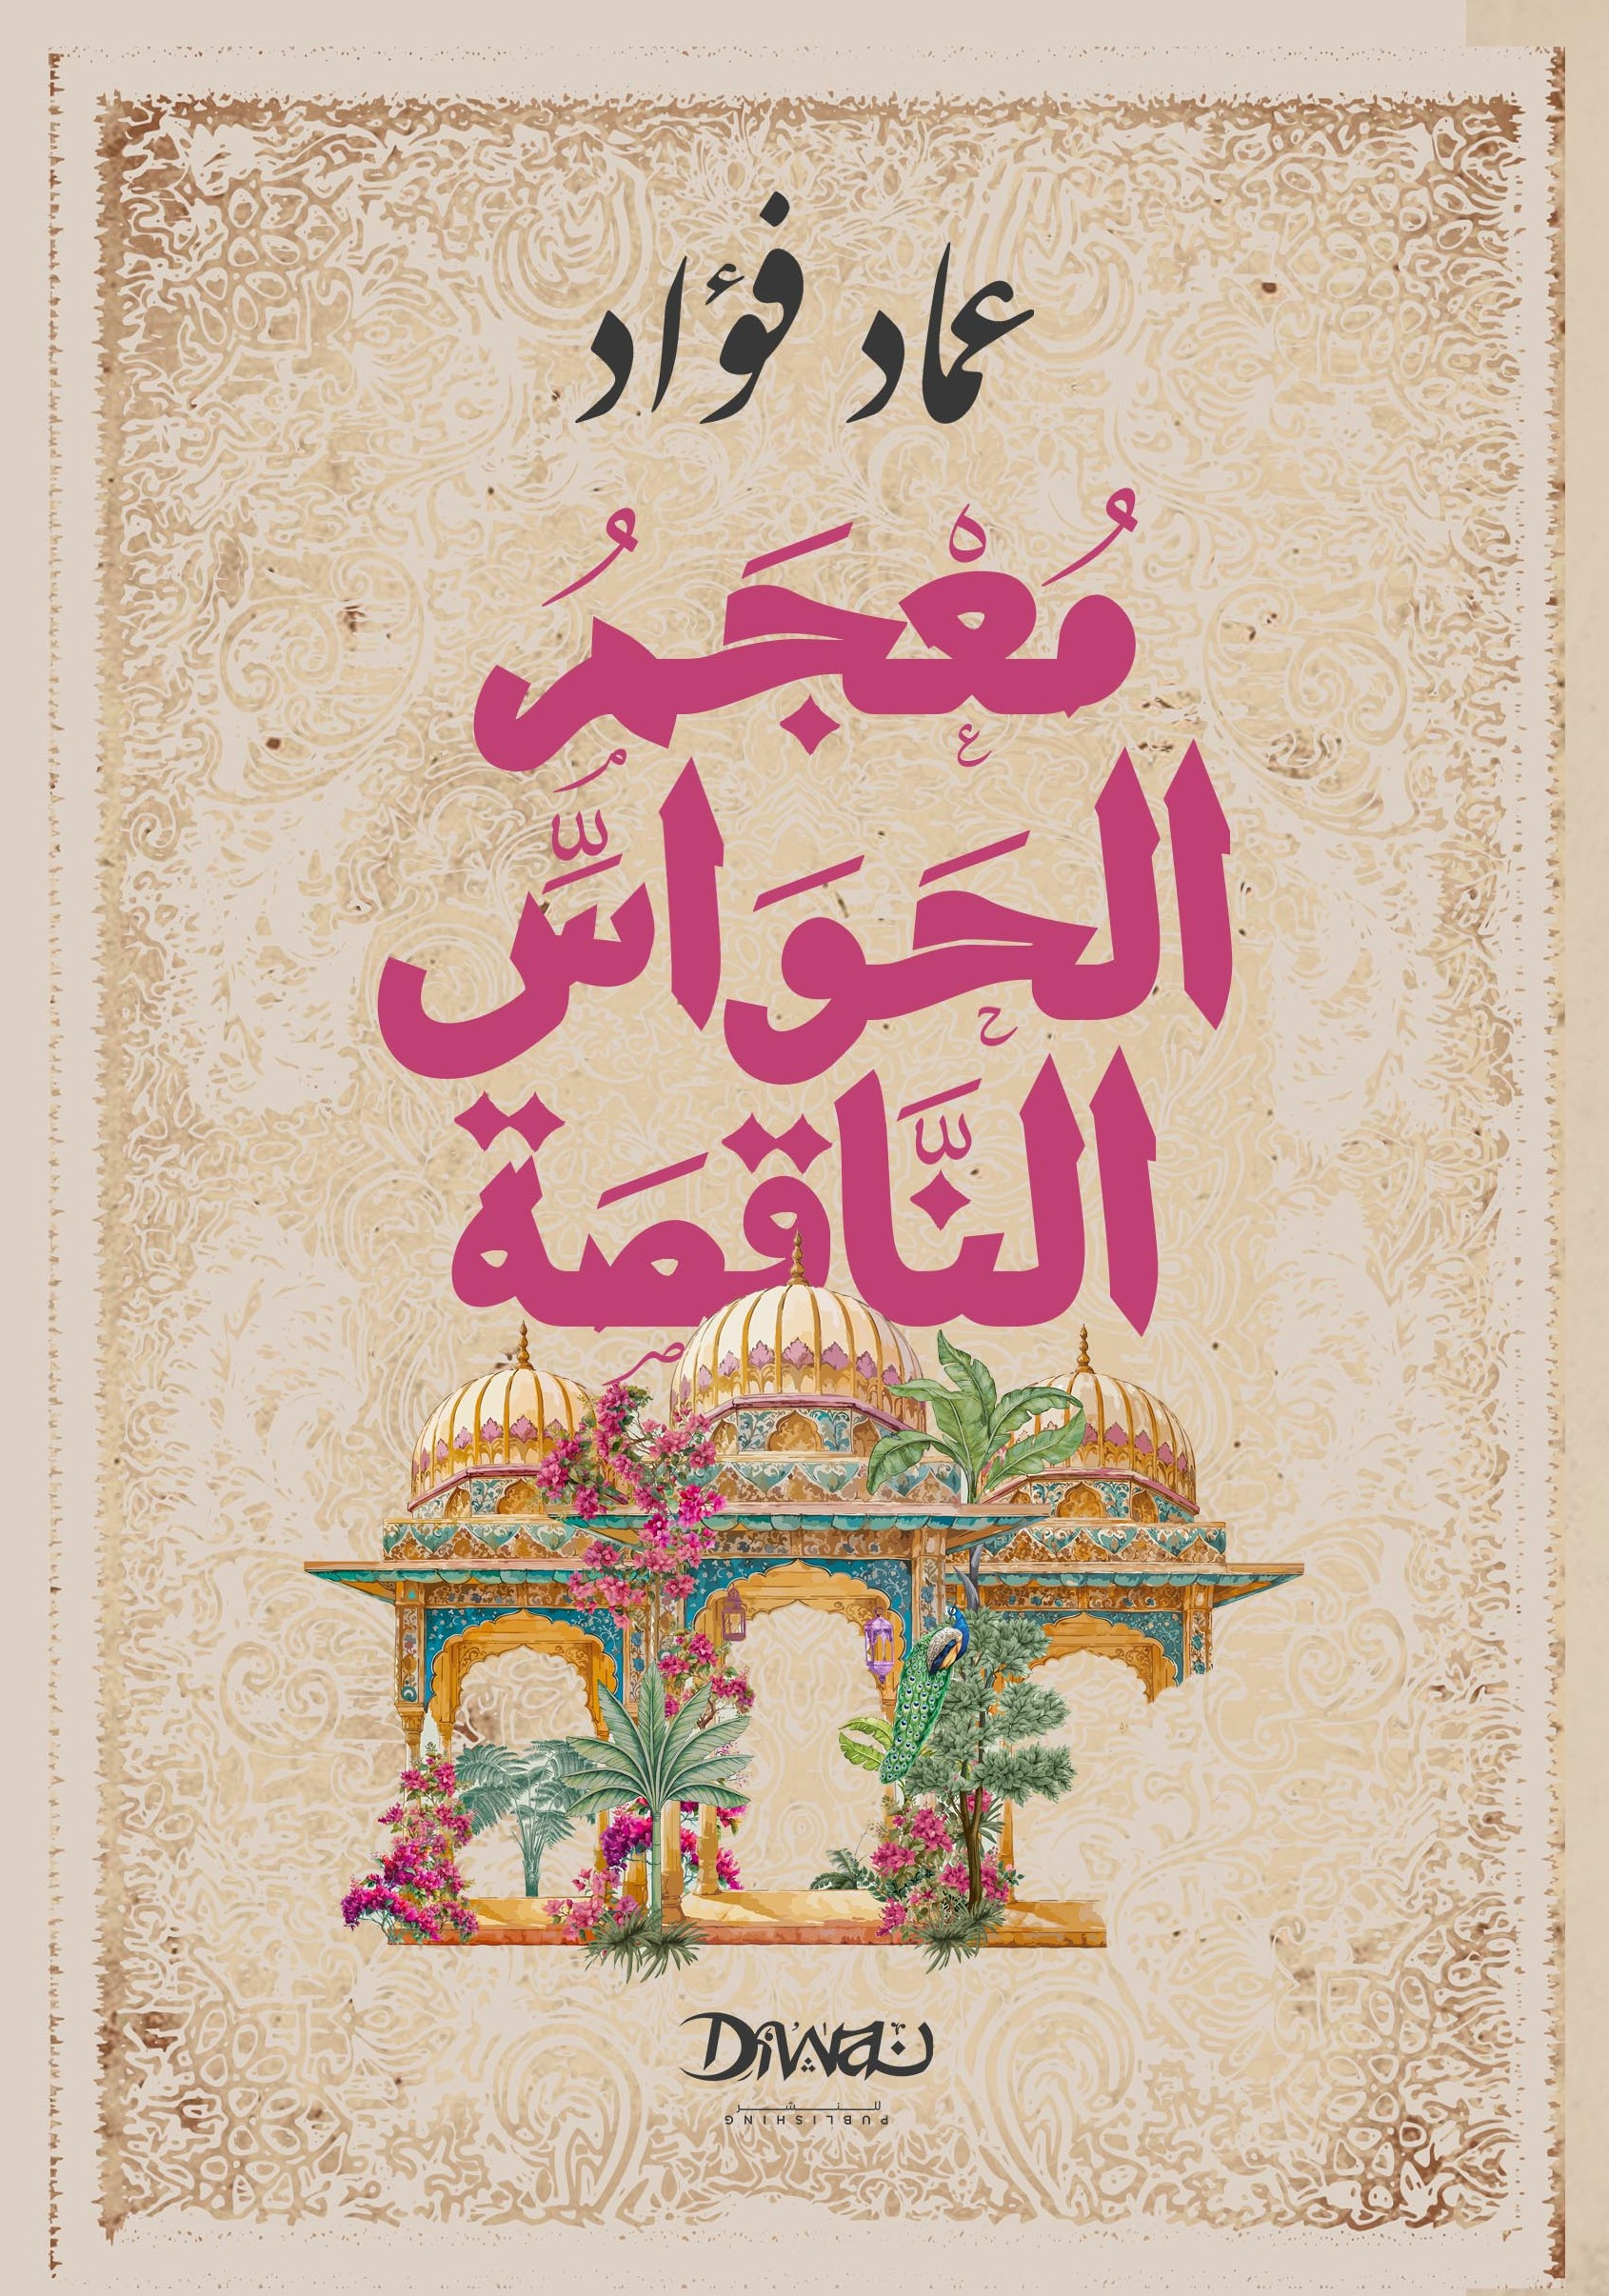 عماد فؤاد
مُعْجَمُ
الحَوَاسِّ
النَّاقِصَة
Diwan
للنشر
PUBLISHING